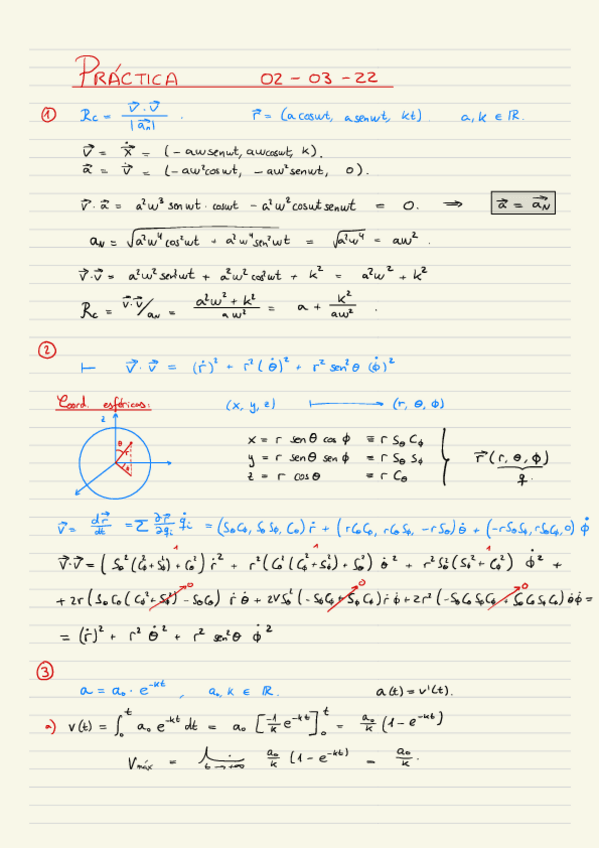 PRÁCTICA 02-03-22
① Rc = v⃗·v⃗ / |a⃗n| . r⃗ = (a coswt, a senwt, kt) a, k ∈ ℝ.
v⃗ = ẋ⃗ = (-aw senwt, aw coswt, k).
a⃗ = v⃗̇ = (-aw² coswt, -aw² senwt, 0).
v⃗·a⃗ = a²w³ senwt · coswt - a²w³ coswt senwt = 0. ⟹ a⃗ = a⃗N
aN = √(a²w⁴ cos²wt + a²w⁴ sen²wt) = √(a²w⁴) = aw².
v⃗·v⃗ = a²w² sen²wt + a²w² cos²wt + k² = a²w² + k²
Rc = v⃗·v⃗/aN = (a²w² + k²)/(aw²) = a + k²/(aw²) .
②
⊢ v⃗·v⃗ = (ṙ)² + r²(θ̇)² + r² sen²θ (φ̇)²
Coord. esféricas: (x, y, z) ⟼ (r, θ, φ)
z
θ
r
φ
x = r senθ cosφ ≡ r Sθ Cφ
y = r senθ senφ ≡ r Sθ Sφ
z = r cosθ ≡ r Cθ
r⃗(r, θ, φ)
q.
v⃗ = dr⃗/dt = Σ ∂r⃗/∂qi q̇i = (SθCφ, SθSφ, Cθ) ṙ + (rCθCφ, rCθSφ, -rSθ) θ̇ + (-rSθSφ, rSθCφ, 0) φ̇
v⃗·v⃗ = (Sθ²(Cφ²+Sφ²)+Cθ²) ṙ² + r²(Cθ²(Cφ²+Sφ²)+Sθ²) θ̇² + r²Sθ²(Sφ²+Cφ²) φ̇² +
+ 2r(SθCθ(Cφ²+Sφ²) - SθCθ) ṙθ̇ + 2rSθ²(-SφCφ+SφCφ) ṙφ̇ + 2r²(-SθCθSφCφ + SθCθSφCφ) θ̇φ̇ =
= (ṙ)² + r² θ̇² + r² sen²θ φ̇²
③
a = a₀ · e^-kt , a₀, k ∈ ℝ. a(t) = v'(t).
a) v(t) = ∫₀ᵗ a₀ e^-kt dt = a₀ [-1/k e^-kt]₀ᵗ = a₀/k (1 - e^-kt)
Vmáx = lim t→+∞ a₀/k (1 - e^-kt) = a₀/k.